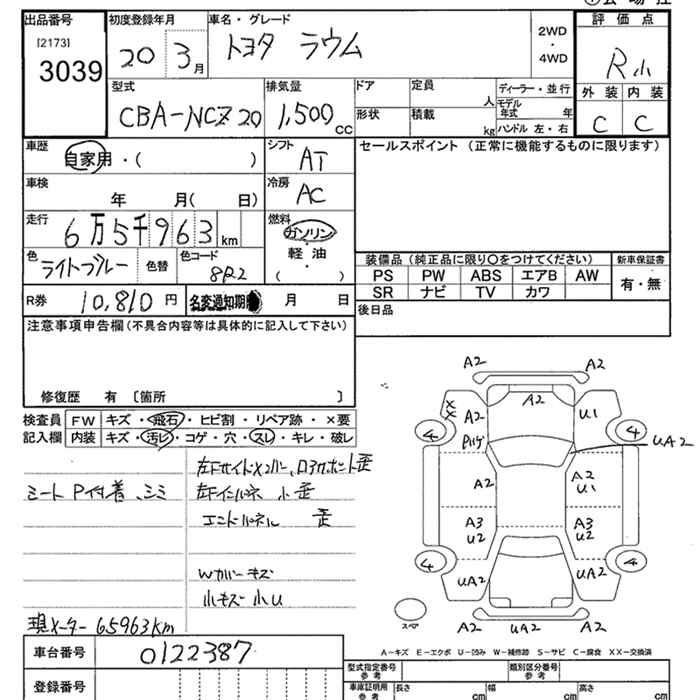 出品番号
[2173]
3039
初度登録年月
20 3月
車名・グレード
トヨタ ラウム
2WD
・
4WD
評価点
R小
外装 内装
C C
型式
CBA-NCZ20
排気量
1,500 cc
ドア
定員
人
形状
積載
kg
ディーラー・並行
モデル年式 年
ハンドル 左・右
車歴
自家用・( )
シフト
AT
セールスポイント (正常に機能するものに限ります)
車検
年 月( 日)
冷房
AC
走行
6万5千963km
燃料
ガソリン
・
軽油
( )
色
ライトブルー
色替
色コード
8R2
装備品 (純正品に限り〇をつけてください)
新車保証書
PS PW ABS エアB AW
SR ナビ TV カワ
有・無
R券
10,810円
名変通知期
月 日
後日品
注意事項申告欄(不具合内容等は具体的に記入して下さい)
修復歴 有 〔箇所 〕
検査員記入欄
FW キズ・飛石・ヒビ割・リペア跡・×要
内装 キズ・汚レ・コゲ・穴・スレ・キレ・破レ
シート P付着、シミ
左Fインパネ 小歪
エンドパネル 歪
Wカバーキズ
小キズ小U
現メーター 65963km
A2 A2
A2
XX A2 U1
4 4
UA2
A2 A2 U1
A3 U2 A3 U2
4 4
UA2 UA2
スペア
A2 UA2 A2
A-キズ E-エクボ U-凹み W-補修跡 S-サビ C-腐食 XX-交換済
車台番号
0122387
型式指定番号
参考
類別区分番号
参考
登録番号
車庫証明用
参考
長さ cm
幅 cm
高さ cm